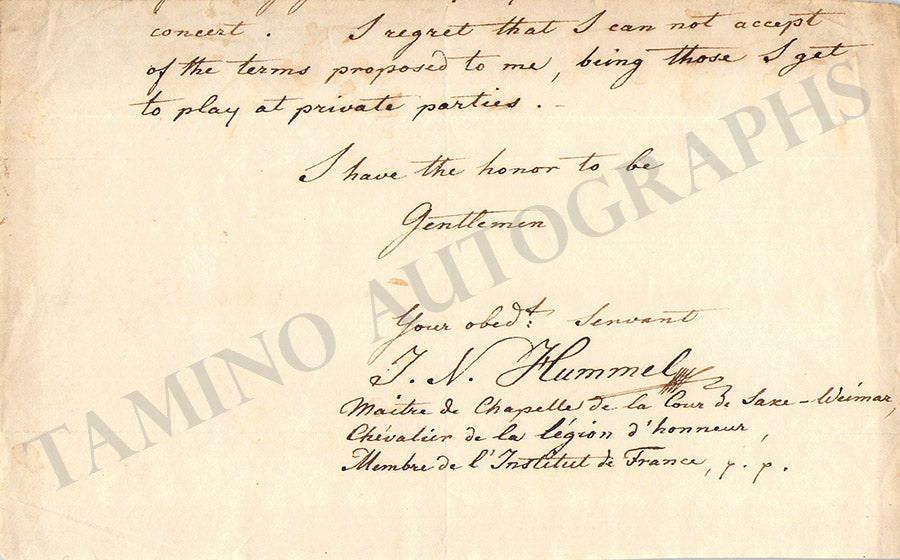 concert. I regret that I can not accept
of the terms proposed to me, being those I get
to play at private parties. –
I have the honor to be
Gentlemen
Your obedt: Servant
J. N. Hummel
Maitre de Chapelle de la Cour de Saxe-Weimar,
Chévalier de la légion d'honneur,
Membre de l'Institut de France, p. p.
TAMINO AUTOGRAPHS